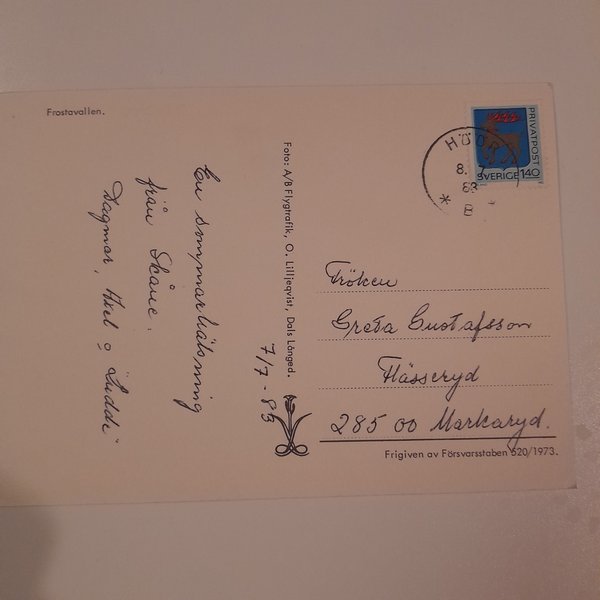 Frostavallen.
En sommarhälsning
från Skåne.
Dagmar, Axel o
7/7-83
Foto: A/B Flygtrafik, O. Lilljeqvist, Dals Långed.
HÖÖR
8. 7
83
* B *
PRIVATPOST
SVERIGE 140
Fröken
Greta Gustafsson
Hässeryd
285 00 Markaryd.
Frigiven av Försvarsstaben 520/1973.